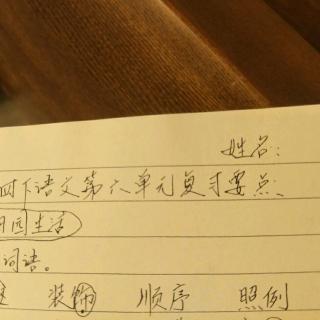 姓名:
四下语文第六单元复习要点:
田园生活
词语。
装饰 顺序 照例